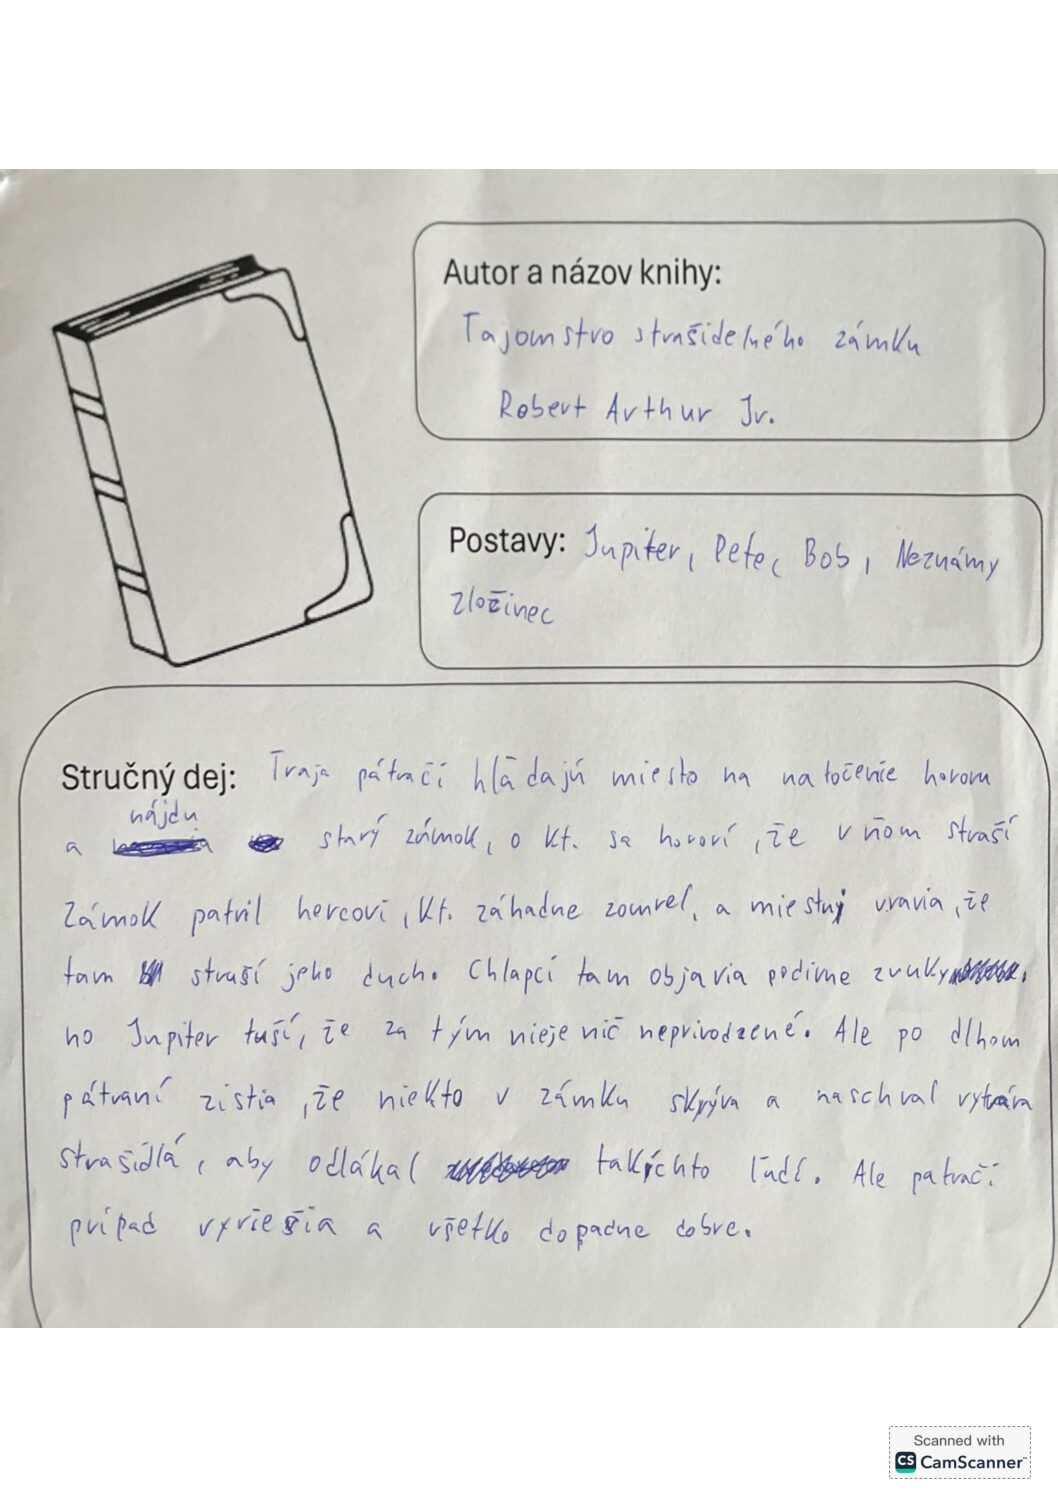 Autor a názov knihy:
Tajomstvo strašidelného zámku
Robert Arthur Jr.
Postavy: Jupiter, Pete, Bob, Neznámy
zločinec
Stručný dej: Traja pátrači hľadajú miesto na natočenie hororu
nájdu
a starý zámok, o kt. sa hovorí, že v ňom straší
Zámok patril hercovi, kt. záhadne zomrel, a miestny vravia, že
tam straší jeho duch. Chlapci tam objavia podivne zvuky.
no Jupiter tuší, že za tým nieje nič neprirodzené. Ale po dlhom
pátraní zistia, že niekto v zámku skrýva a naschval vytvára
strašidlá, aby odlákal takýchto ľudí. Ale patrači
prípad vyriešia a všetko dopadne dobre.
Scanned with
CS CamScanner